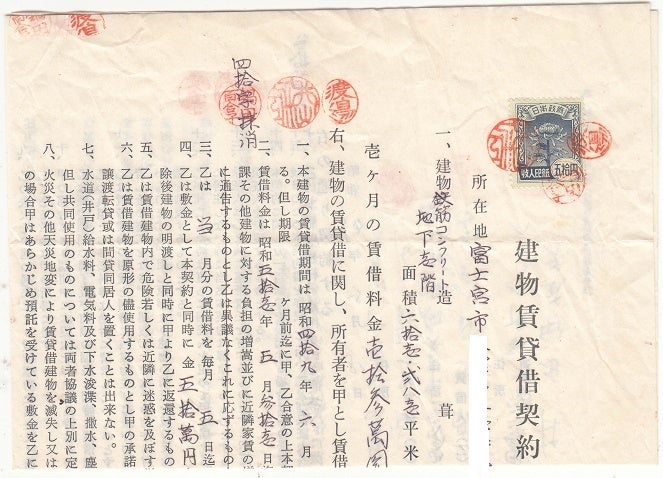 建物賃貸借契約
日本政府
五拾円
収入印紙
所在地 富士宮市
一、建物 鉄筋コンクリート造 葺
地下壱階
面積 六拾壱・弐八壱 平米
壱ヶ月の賃借料 金壱拾参萬円
右、建物の賃貸借に関し、所有者を甲とし賃借
一、本建物の賃貸借期間は昭和四拾九年 六 月
る。但し期限 ヶ月前迄に甲、乙合意の上本契
二、賃借料金は昭和五拾壱年 五 月分 拾壱 日迄
課その他建物に対する負担の増嵩並びに近隣家賃の増
に通告するものとし乙は異議なくこれに応ずるもの
三、乙は 当 月分の賃借料を毎月 五 日迄
四、乙は敷金として本契約と同時に金 五拾萬円
除後建物の明渡しと同時に甲より乙に返還するもの
五、乙は賃借建物内で危険若しくは近隣に迷惑を及ぼす
六、乙は賃借建物を原形の儘使用するものとし甲の承諾
譲渡転貸又は間貸同居人を置くことは出来ない。
七、水道(井戸)給水料、電気料及び下水浚渫、撒水、塵
但し共同使用のものについては両者協議の上別に定
八、火災その他天災地変により賃借建物を滅失し又は
の場合甲はあらかじめ預託を受けている敷金を乙に
四拾字抹消
渡邉